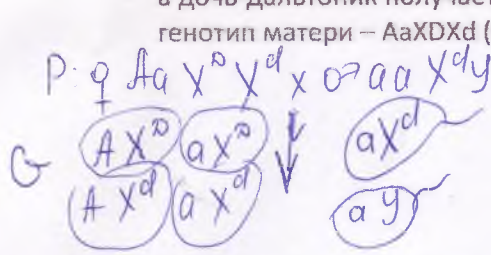 а дочь дальтоник получает
генотип матери – AaXDXd (
P: ♀ Aa X^D X^d x ♂ aa X^d y
G AX^D aX^D aX^d
AX^d aX^d ay